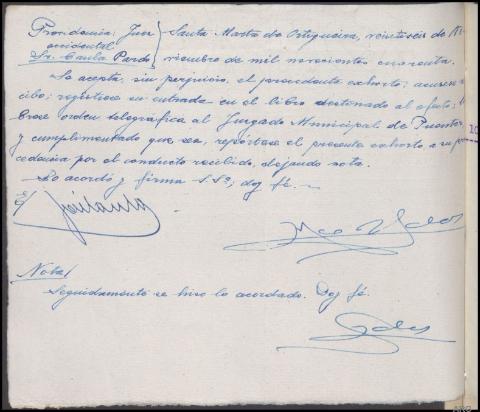 Providencia; Juez } Santa Marta de Ortigueira, veintiseis de No-
accidental
Sr. Caula Pardo } viembre de mil novecientos cuarenta.
Se acepta, sin perjuicio, el precedente exhorto; acusese re-
cibo; registrese su entrada en el libro destinado al efecto; li-
brese orden telegráfica al Juzgado Municipal de Puentes
y cumplimentado que sea, repórtese el presente exhorto a su pro-
cedencia por el conducto recibido, dejando nota.
Lo acordó y firma S.Sª; doy fé.
Nota/
Seguidamente se hizo lo acordado. Doy fé.